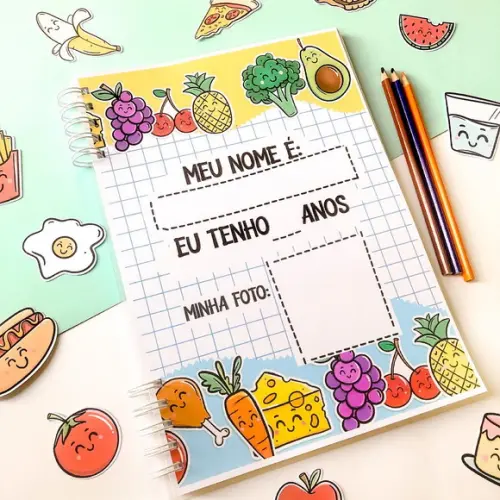 MEU NOME É:
EU TENHO __ ANOS
MINHA FOTO: